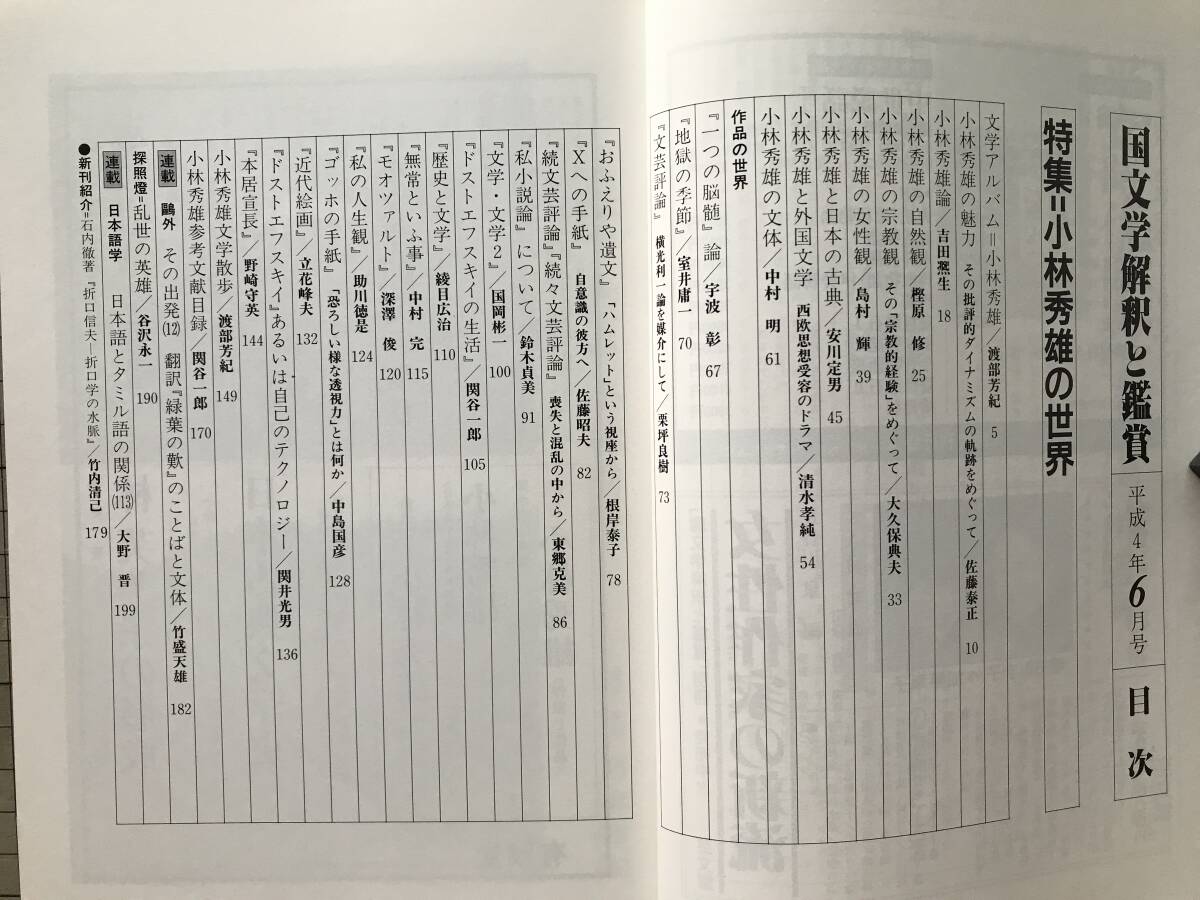 国文学解釈と鑑賞 平成4年6月号 目次
特集=小林秀雄の世界
文学アルバム=小林秀雄/渡部芳紀 5
小林秀雄の魅力 その批評的ダイナミズムの軌跡をめぐって/佐藤泰正 10
小林秀雄論/吉田凞生 18
小林秀雄の自然観/樫原 修 25
小林秀雄の宗教観 その「宗教的経験」をめぐって/大久保典夫 33
小林秀雄の女性観/島村 輝 39
小林秀雄と日本の古典/安川定男 45
小林秀雄と外国文学 西欧思想受容のドラマ/清水孝純 54
小林秀雄の文体/中村 明 61
作品の世界
『一つの脳髄』論/宇波 彰 67
『地獄の季節』/室井庸一 70
『文芸評論』 横光利一論を媒介にして/栗坪良樹 73
『おふえりや遺文』 「ハムレット」という視座から/根岸泰子 78
『Xへの手紙』 自意識の彼方へ/佐藤昭夫 82
『続文芸評論』『続々文芸評論』 喪失と混乱の中から/東郷克美 86
『私小説論』について/鈴木貞美 91
『文学・文学2』/国岡彬一 100
『ドストエフスキイの生活』/関谷一郎 105
『歴史と文学』/綾目広治 110
『無常といふ事』/中村 完 115
『モオツァルト』/深澤 俊 120
『私の人生観』/助川徳是 124
『ゴッホの手紙』 「恐ろしい様な透視力」とは何か/中島国彦 128
『近代絵画』/立花峰夫 132
『ドストエフスキイ』あるいは自己のテクノロジー/関井光男 136
『本居宣長』/野崎守英 144
小林秀雄文学散歩/渡部芳紀 149
小林秀雄参考文献目録/関谷一郎 170
連載 鷗外 その出発(12) 翻訳『緑葉の歎』のことばと文体/竹盛天雄 182
探照燈=乱世の英雄/谷沢永一 190
連載 日本語学 日本語とタミル語の関係(113)/大野 晋 199
●新刊紹介=石内徹著『折口信夫―折口学の水脈』/竹内清己 179